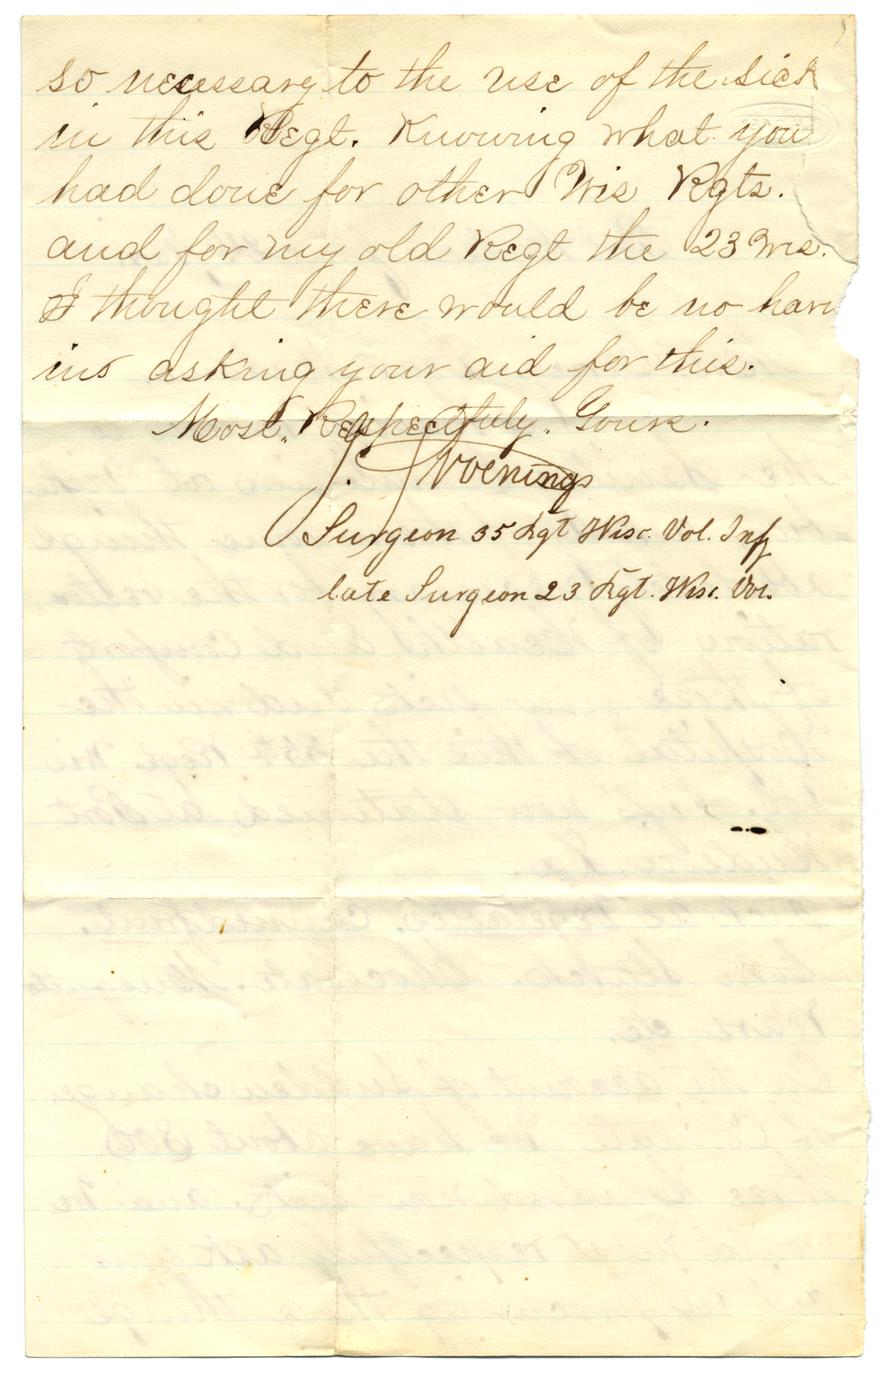 so necessary to the use of the sick
in this Regt. Knowing what you
had done for other Wis Rgts.
and for my old Regt the 23 Wis.
I thought there would be no harm
in asking your aid for this.
Most. Respectfuly. Yours.
J.
Surgeon 35 Rgt Wisc. Vol. Inf
late Surgeon 23 Rgt. Wisc. Vol.